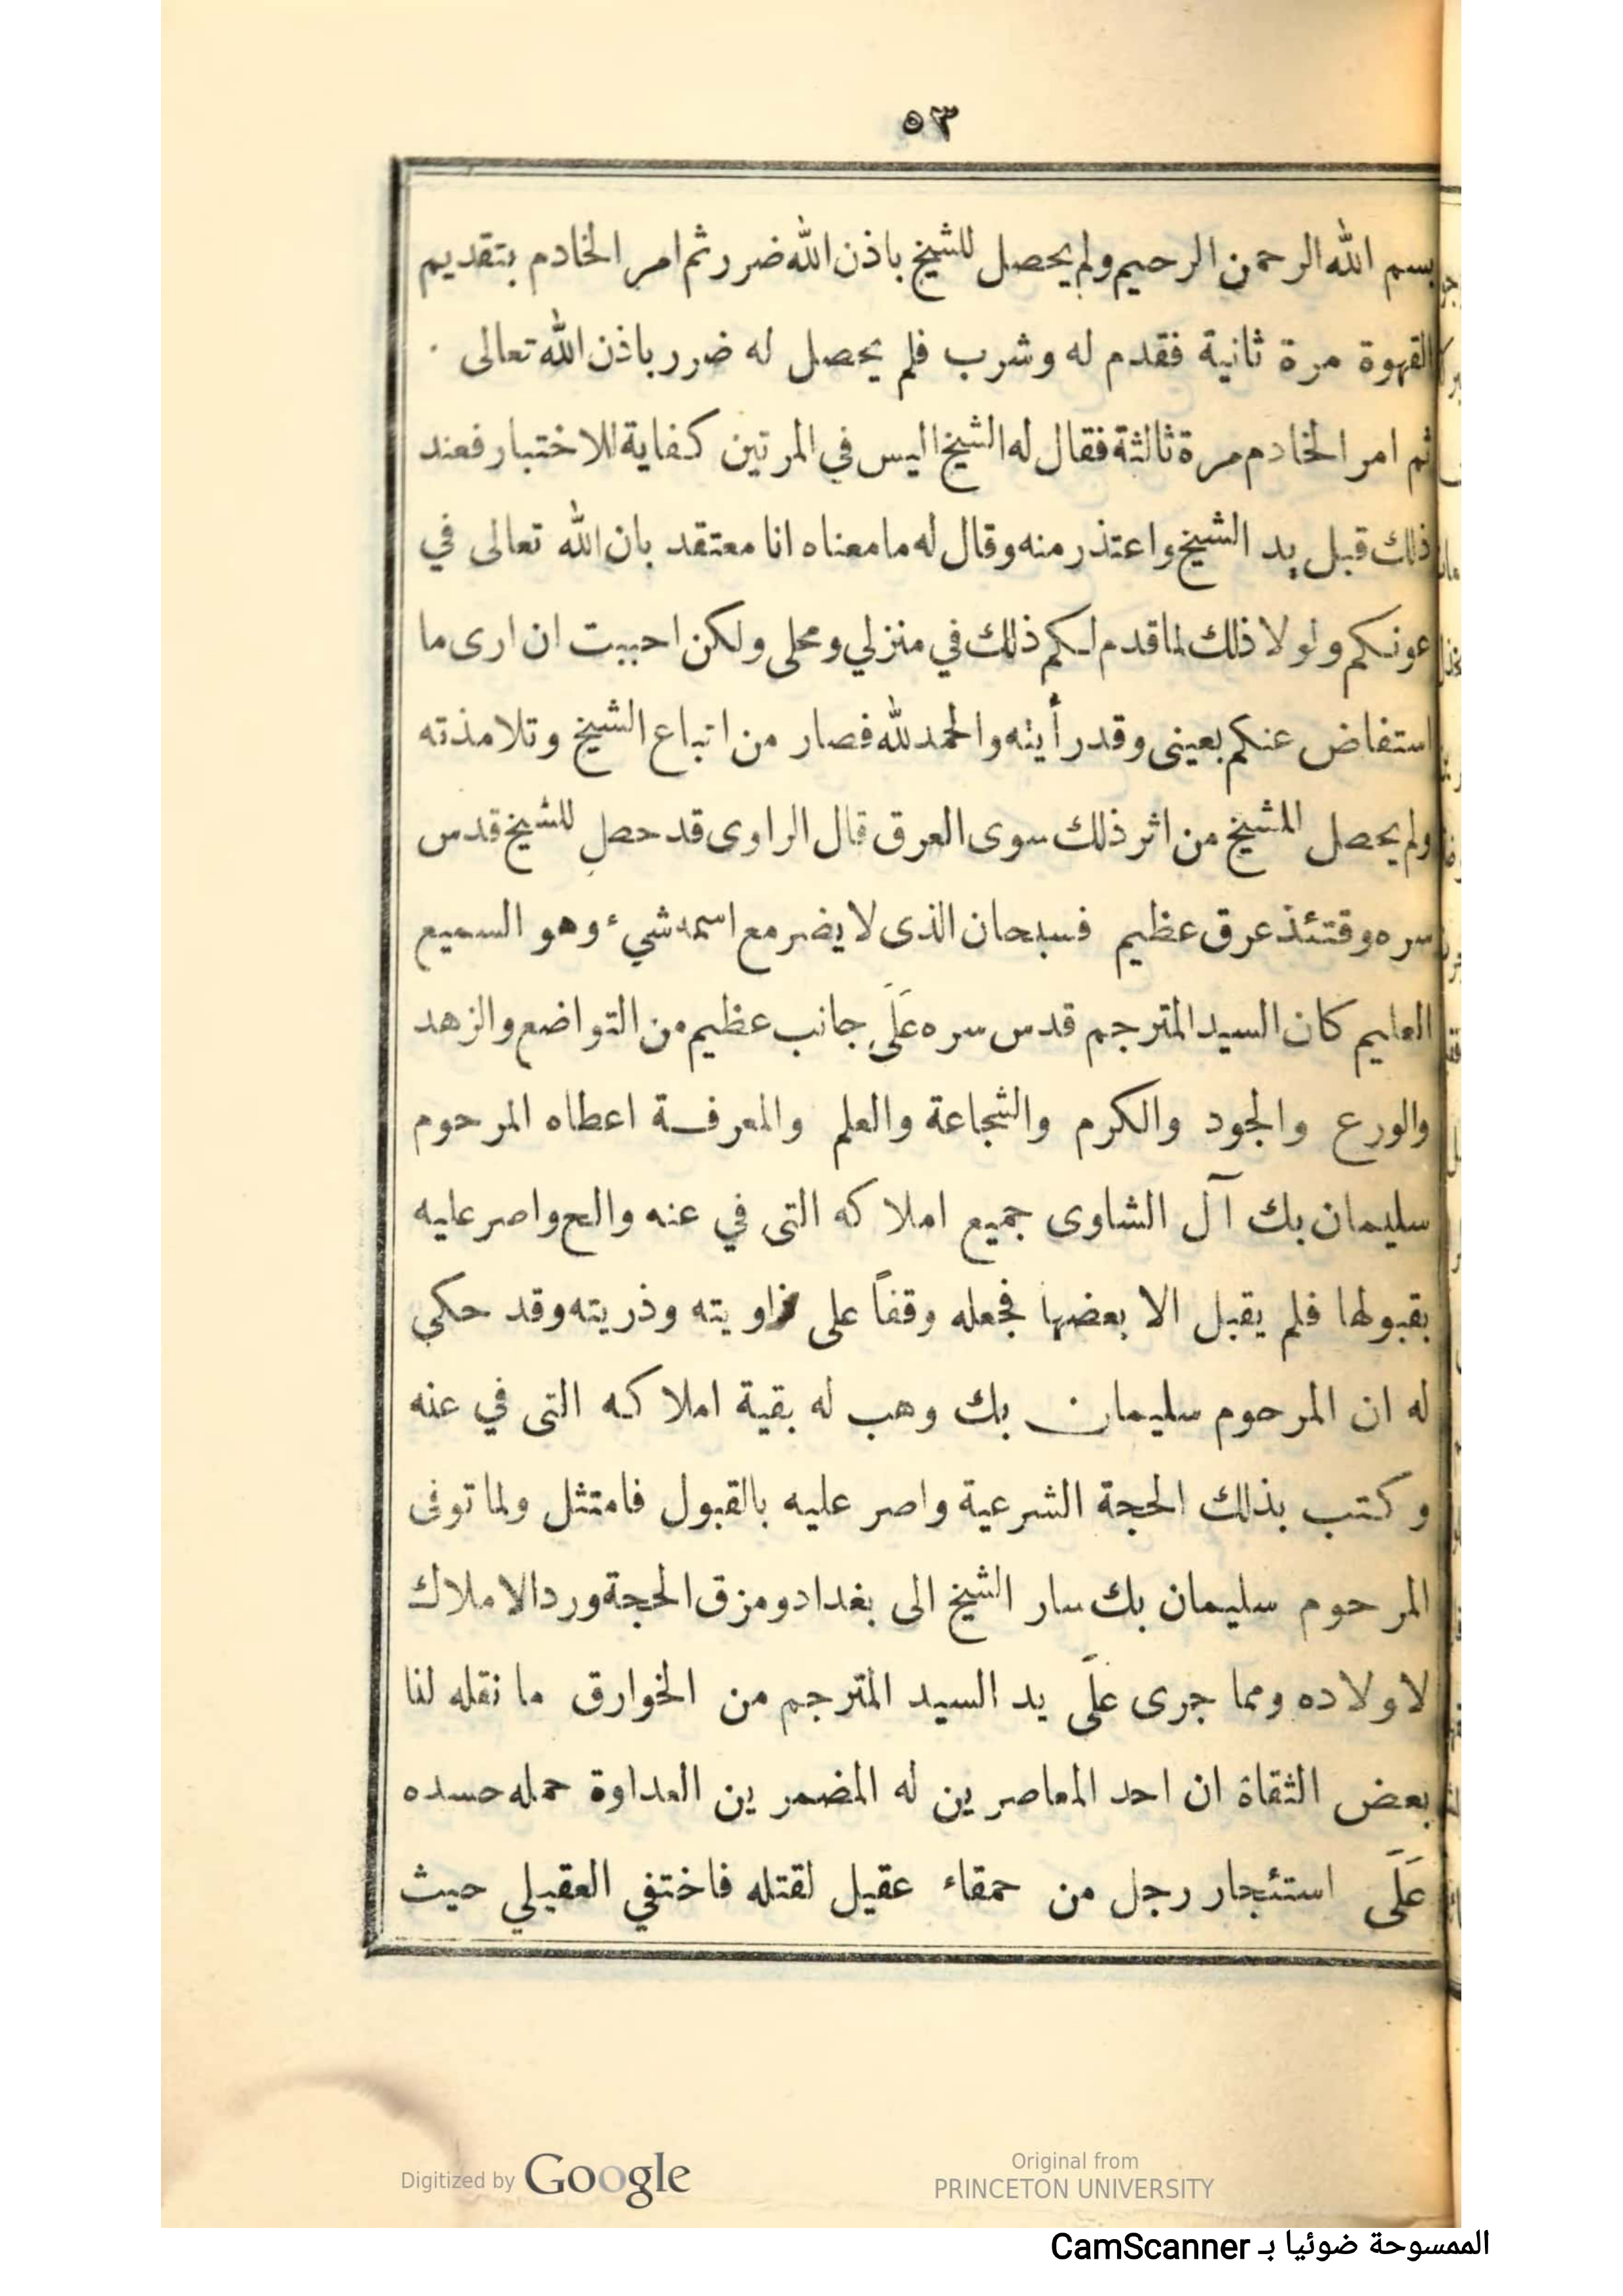 ٥٣
بسم الله الرحمن الرحيم ولم يحصل للشيخ باذن الله ضرر ثم امر الخادم بتقديم
القهوة مرة ثانية فقدم له وشرب فلم يحصل له ضرر باذن الله تعالى ٠
ثم امر الخادم مرة ثالثة فقال له الشيخ اليس في المرتين كفاية للاختبار فعند
ذلك قبل يد الشيخ واعتذر منه وقال له ما معناه انا معتقد بان الله تعالى في
عونكم ولولا ذلك لما قدم لكم ذلك في منزلي ومحلى ولكن احببت ان ارى ما
استفاض عنكم بعينى وقد رأيته والحمد لله فصار من اتباع الشيخ وتلامذته
ولم يحصل للشيخ من اثر ذلك سوى العرق قال الراوى قد حصل للشيخ قدس
سره وقتئذ عرق عظيم فسبحان الذى لا يضر مع اسمه شيء وهو السميع
العليم كان السيد المترجم قدس سره عَلَى جانب عظيم من التواضع والزهد
والورع والجود والكرم والشجاعة والعلم والمعرفة اعطاه المرحوم
سليمان بك آل الشاوى جميع املاكه التى في عنه والح واصر عليه
بقبولها فلم يقبل الا بعضها فجعله وقفاً على زاويته وذريته وقد حكي
له ان المرحوم سليمان بك وهب له بقية املاكه التى في عنه
وكتب بذلك الحجة الشرعية واصر عليه بالقبول فامتثل ولما توفى
المرحوم سليمان بك سار الشيخ الى بغداد ومزق الحجة ورد الاملاك
لاولاده ومما جرى عَلَى يد السيد المترجم من الخوارق ما نقله لنا
بعض الثقاة ان احد المعاصرين له المضمرين العداوة حمله حسده
عَلَى استئجار رجل من حمقاء عقيل لقتله فاختفي العقيلي حيث
Digitized by Google
Original from
PRINCETON UNIVERSITY
الممسوحة ضوئيا بـ CamScanner